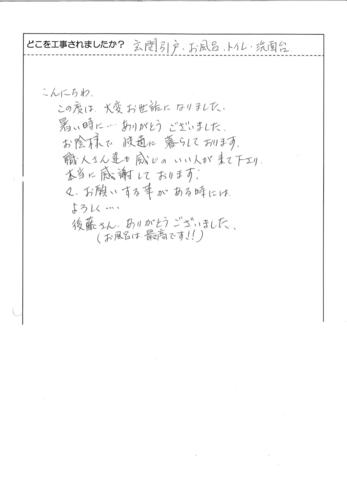 どこを工事されましたか? 玄関引戸・お風呂・トイレ・洗面台
こんにちわ、
この度は、大変お世話になりました。
暑い時に…ありがとうございました。
お陰様で快適に暮らしております。
職人さん達も感じのいい人が来て下さり
本当に感謝しております。
又、お願いする事がある時には
よろしく…
後藤さん、ありがとうございました。
(お風呂は最高です!!)